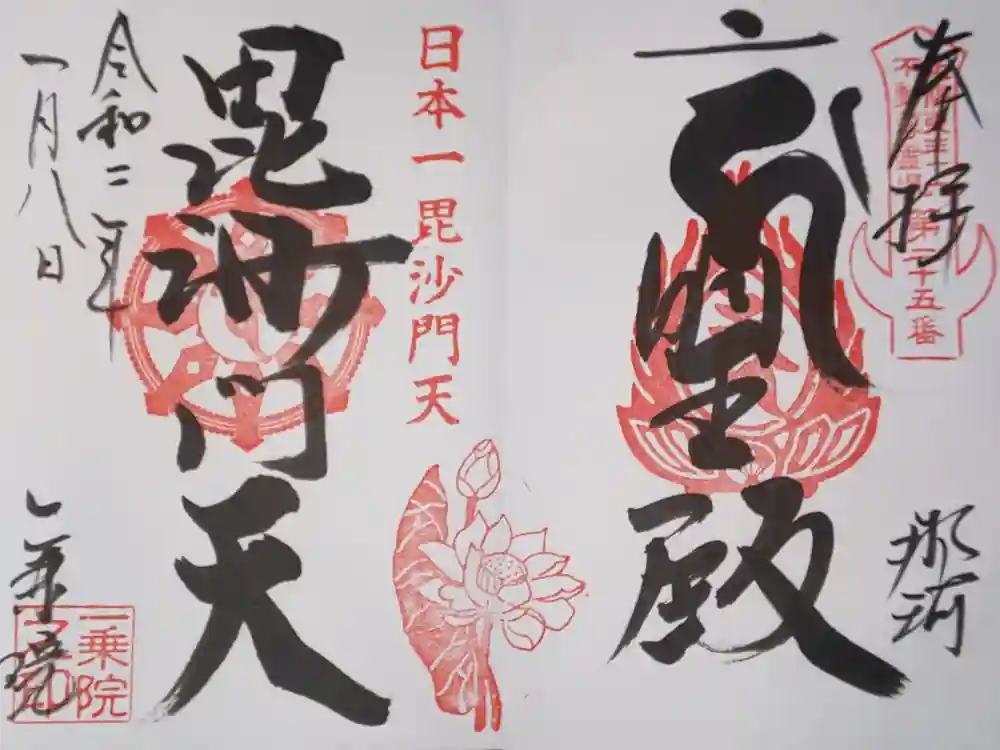 奉拝
第二十五番
那珂
明王殿
日本一毘沙門天
毘沙門天
令和二年
一月八日
一乗院
一乗院
之印